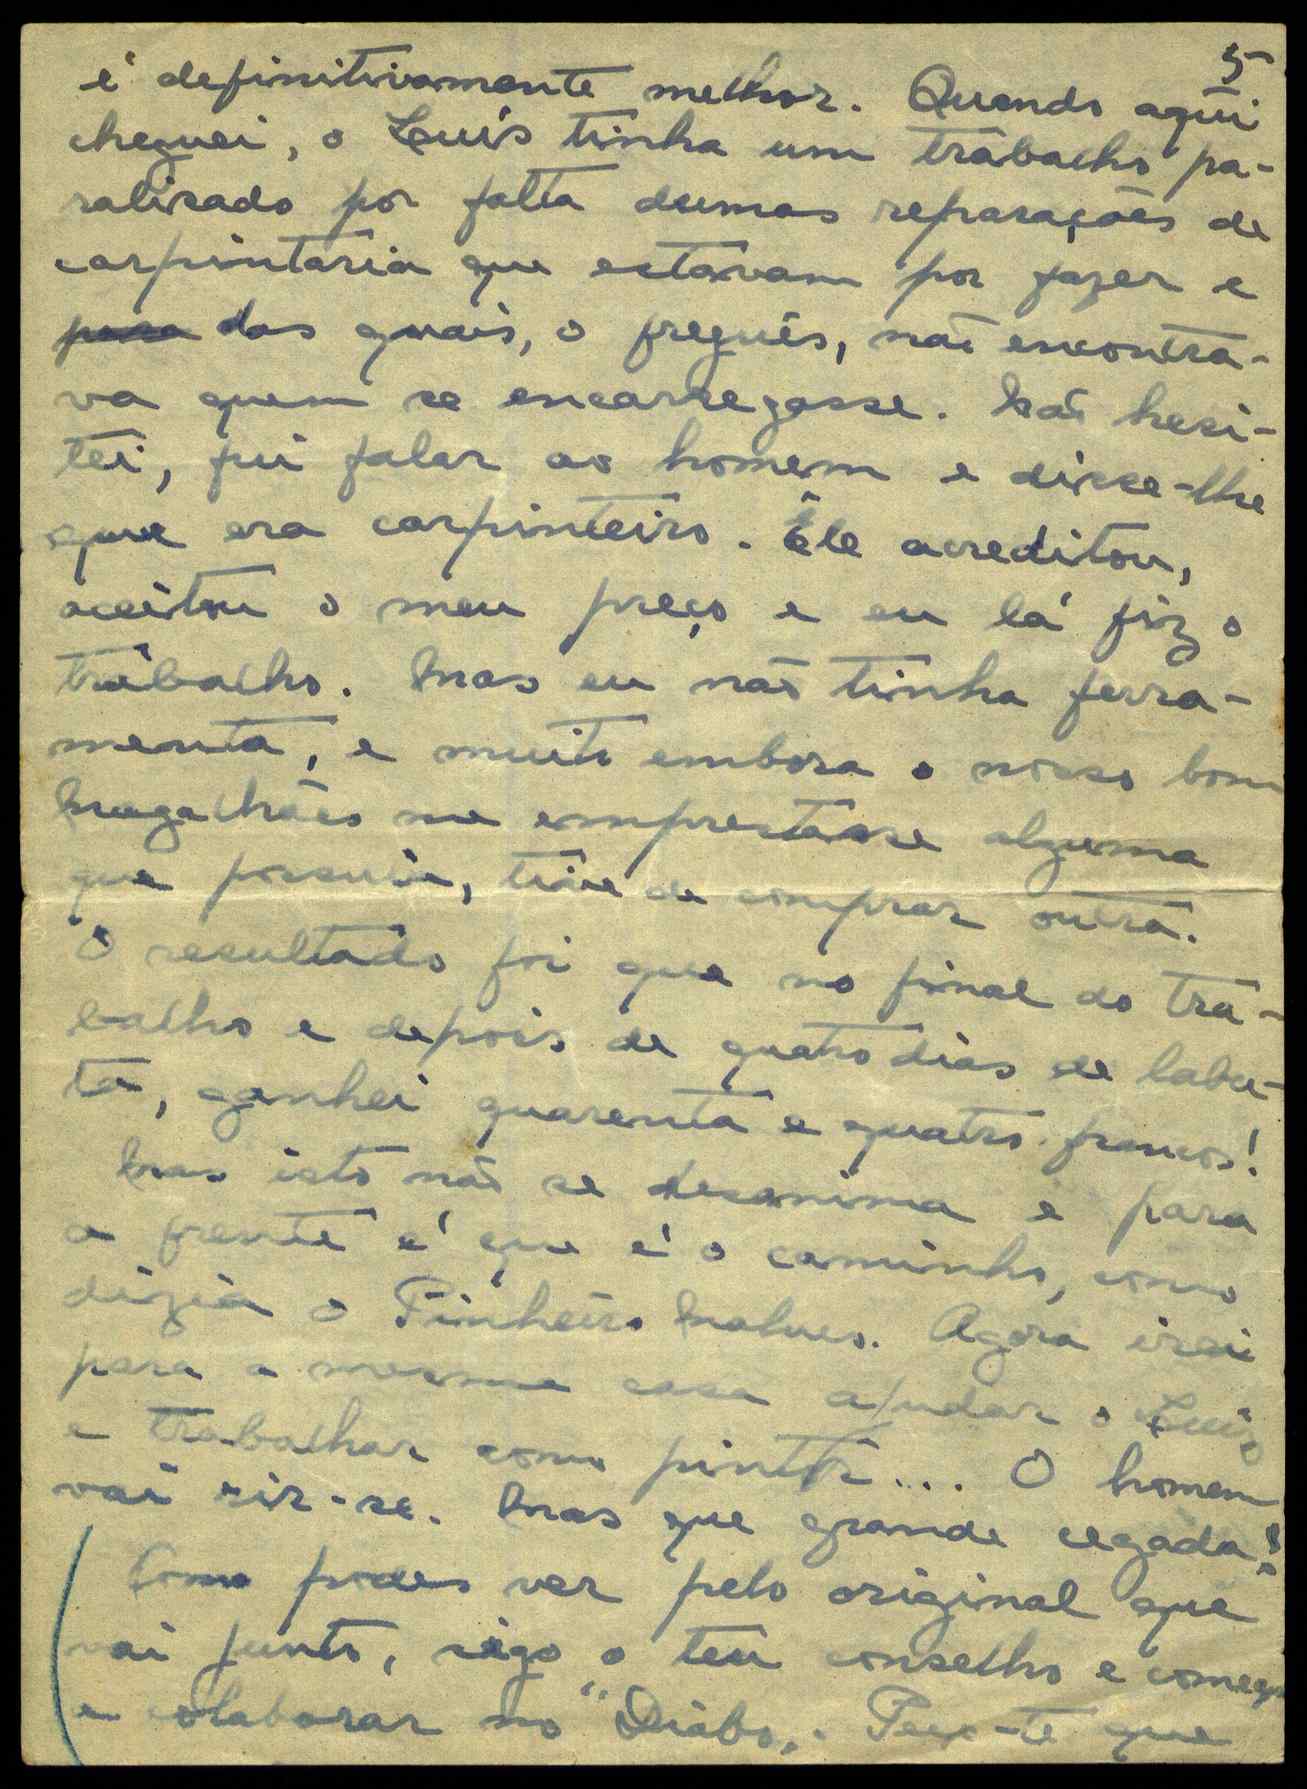 5
é definitivamente melhor. Quando aqui
cheguei, o Luís tinha um trabalho pa-
ralisado por falta dumas reparações de
carpintaria que estavam por fazer e
para das quais, o freguês, não encontra-
va quem se encarregasse. Não hesi-
tei, fui falar ao homem e disse-lhe
que era carpinteiro. Êle acreditou,
aceitou o meu preço e eu lá fiz o
trabalho. Mas eu não tinha ferra-
menta, e muito embora o nosso bom
Magalhães me emprestasse alguma
que possuia, tive de comprar outra.
O resultado foi que no final do tra-
balho e depois de quatro dias de labu-
ta, ganhei quarenta e quatro francos!
Mas isto não se desanima e para
a frente é que é o caminho, como
dizia o Pinheiro. Agora irei
para a mesma casa ajudar o Luís
e trabalhar como pintor... O homem
vai rir-se. Mas que grande cegada!
Como podes ver pelo original que
vai junto, sigo o teu conselho e começo
a colaborar no "Diabo". Peço-te que